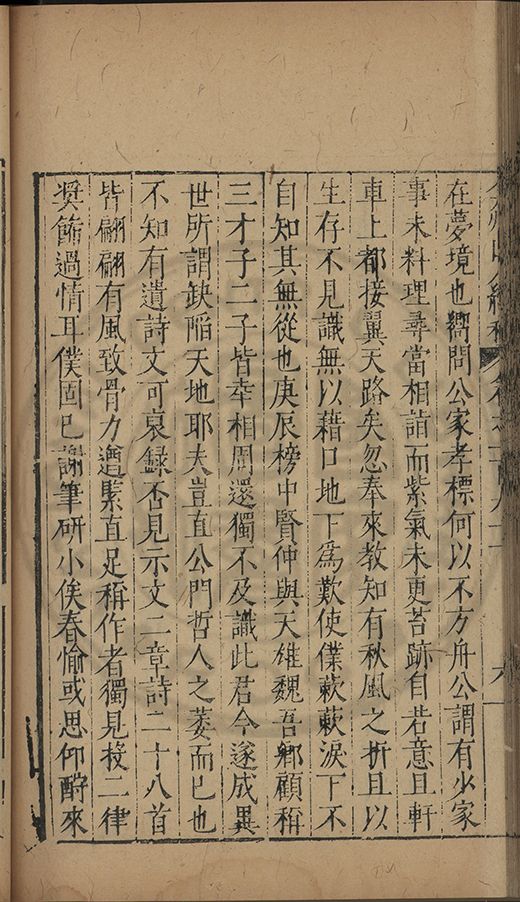 在夢境也嚮問公家孝標何以不方舟公謂有少家
事未料理尋當相詣而紫氣未更苔跡自若意且軒
車上都接翼天路矣忽奉來教知有秋風之折且以
生存不見識無以藉口地下爲歎使僕蔌蔌淚下不
自知其無從也庚辰榜中賢仲與天雄魏吾鄉顧稱
三才子二子皆幸相周還獨不及識此君今遂成異
世所謂缺陷天地耶夫豈直公門哲人之萎而已也
不知有遺詩文可裒録否見示文二章詩二十八首
皆翩翩有風致骨力遒緊直足稱作者獨見投二律
奬飾過情耳僕固已謝筆研小俟春愉或思仰酧來